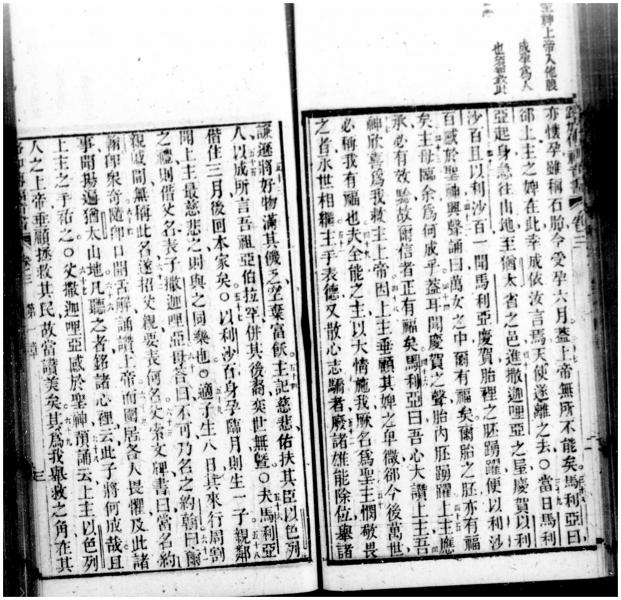 至神上帝入他殿
成孕爲人
亦懷孕雖稱石胎今愛孕六月葢上帝無所不能矣馬利亞曰
卻上主之婢在此幸成依汝言焉天使遂離之去○當日馬利
亞起身急往山地至猶大省之邑進撒迦哩亞之室慶賀以利
沙百且以利沙百一聞馬利亞慶賀胎裡之胚踴躍便以利沙
百感於聖神興聲誦曰萬女之中爾有福矣爾胎之胚亦有福
矣主母臨余爲何成乎葢耳聞慶賀之聲胎內胚踴躍上主應
承必有效驗故爾信者正有福矣馬利亞曰吾心大讚上主吾
神欣喜爲我救主上帝因上主垂顧其婢之卑微卻今後萬世
必稱我有福也夫全能之主以大情施我厥名爲聖主憫敬畏
之者永世相繼主手表德又散心志驕者廢諸雄能除位舉諸
謙遜將好物滿其饑乏空棄富飫主記慈悲佑扶其臣以色列
人以成所言吾祖亞伯拉罕併其後裔奕世無曁○夫馬利亞
偕住三月後回本家矣○以利沙百身孕臨月則生一子親鄰
聞上主最慈悲之則與之同樂也○適子生八日其來行周割
之禮則借父名表子撒迦哩亞母答曰不可乃名之約翰曰爾
親戚間無稱此名遂招父親要表何名父索文牌書曰當名約
翰卽衆奇隨卽口開舌解誦讚上帝而闔居各人畏懼及此諸
事聞揚遍猶太山地凡聽之者銘諸心裡云此子將何成哉且
上主之手祐之○父撒迦哩亞感於聖神預誦云上主以色列
人之上帝垂顧拯救其民故當讚美矣其爲我舉救之角在其
卷三 第一章 三